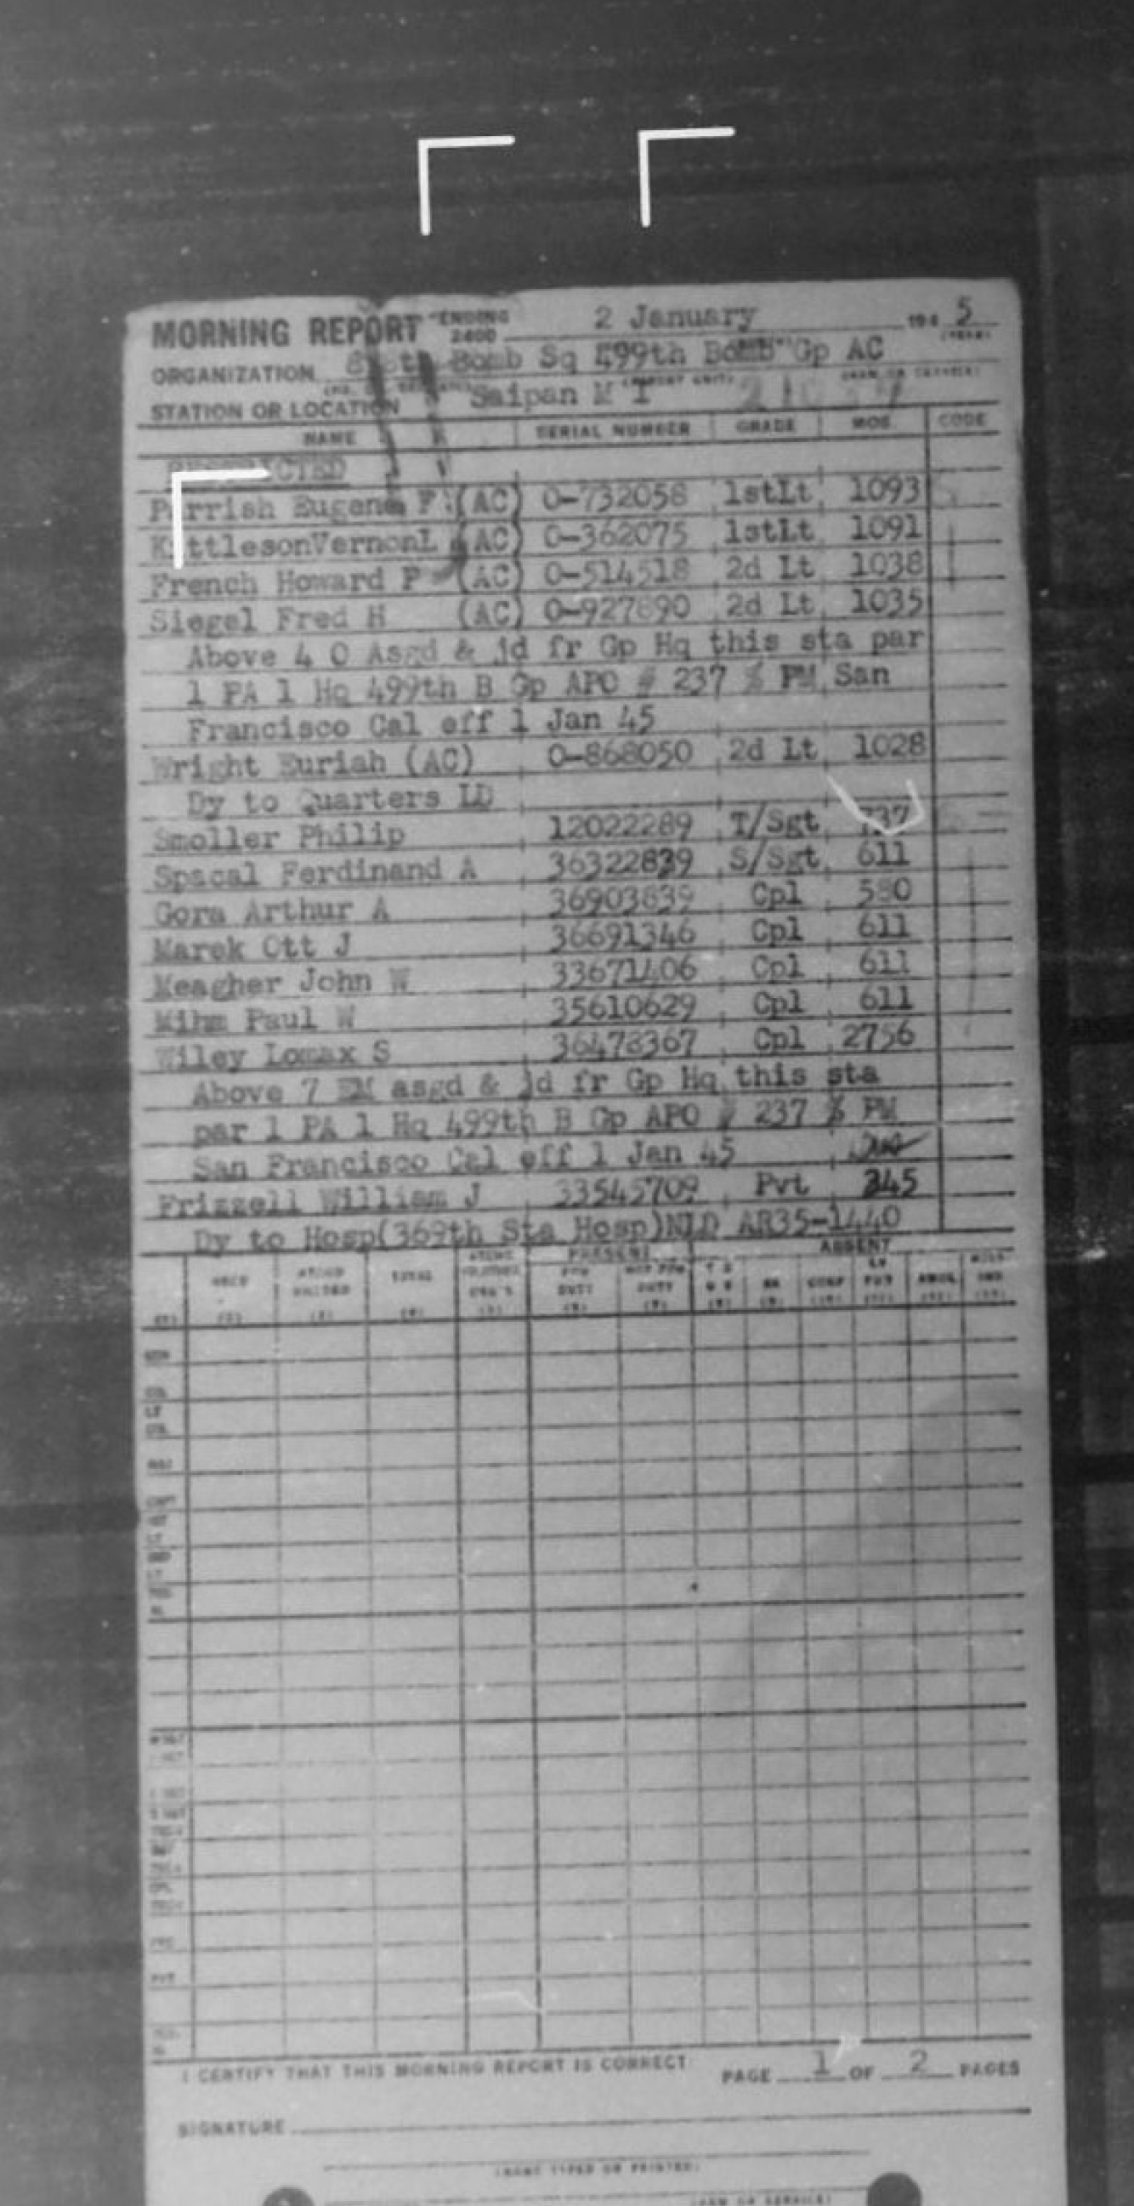 MORNING REPORT ENDING 2400 2 January 194 5
ORGANIZATION Bomb Sq 499th Bomb Gp AC
STATION OR LOCATION Saipan M I
NAME SERIAL NUMBER GRADE MOS. CODE
RESTRICTED
Parrish Eugene F (AC) O-732058 1stLt 1093
KittlesonVernonL (AC) O-362075 1stLt 1091
French Howard P (AC) O-514518 2d Lt 1038
Siegel Fred H (AC) O-927890 2d Lt 1035
Above 4 O Asgd & jd fr Gp Hq this sta par
1 PA 1 Hq 499th B Gp APO # 237 % PM San
Francisco Cal eff 1 Jan 45
Wright Euriah (AC) O-868050 2d Lt 1028
Dy to Quarters LD
Smoller Philip 12022289 T/Sgt 737
Spacal Ferdinand A 36322839 S/Sgt 611
Gora Arthur A 36903839 Cpl 580
Marek Ott J 36691346 Cpl 611
Meagher John W 33671406 Cpl 611
Mihm Paul W 35610629 Cpl 611
Wiley Lomax S 36478367 Cpl 2756
Above 7 EM asgd & jd fr Gp Hq this sta
par 1 PA 1 Hq 499th B Gp APO # 237 % PM
San Francisco Cal eff 1 Jan 45
Frizzell William J 33545709 Pvt 345
Dy to Hosp(369th Sta Hosp)NLD AR35-1440
PRESENT ABSENT
TOTAL FOR DUTY NOT FOR DUTY SK CONF AWOL
COL
LT COL
MAJ
CAPT
1ST LT
2ND LT
PVT
I CERTIFY THAT THIS MORNING REPORT IS CORRECT PAGE 1 OF 2 PAGES
SIGNATURE
(NAME TYPED OR PRINTED)